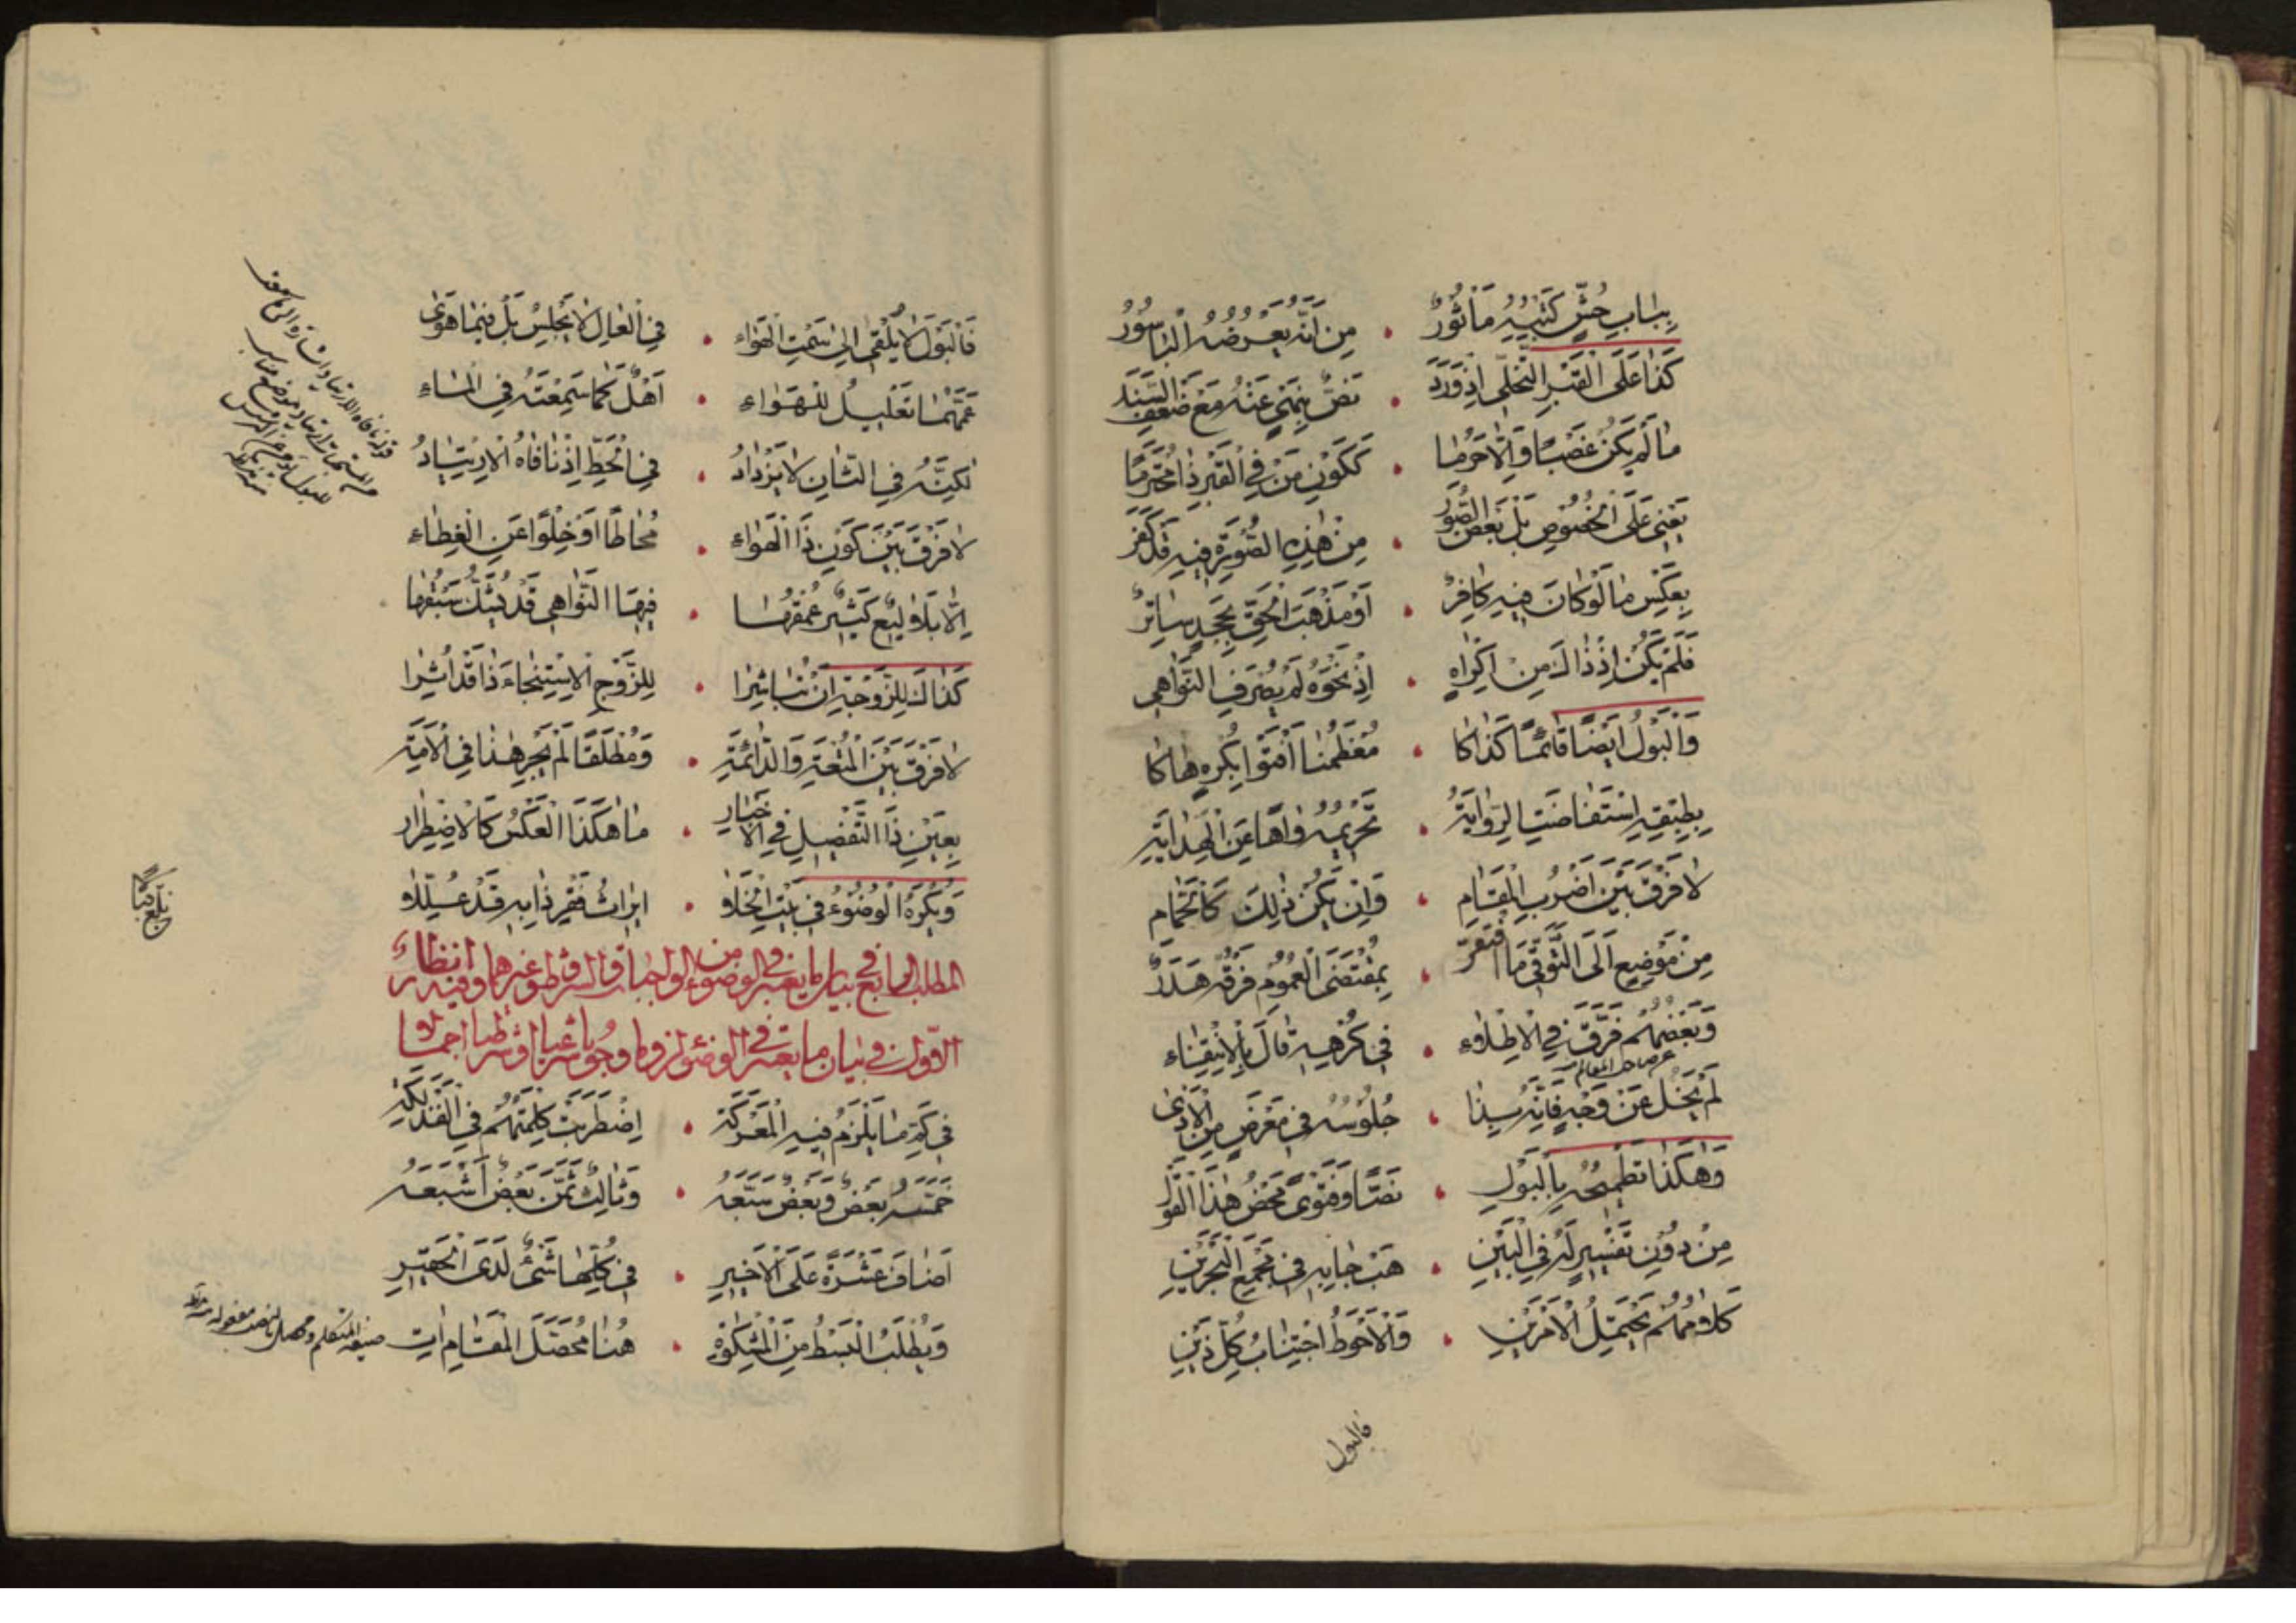 بِبَابِ حُشٍّ كَتْبُهُ مَأْثُورُ • مِنْ أَنَّهُ يَعْرُضُهُ الْبَاسُورُ
كَذَا عَلَى الْقَبْرِ التَّخَلِّي إِذْ وَرَدَ • نَصٌّ بِنَهْيٍ عَنْهُ مَعْ ضَعْفِ السَّنَدِ
مَا لَمْ يَكُنْ غَصْبًا وَإِلَّا حَرُمَا • كَكَوْنِ مَنْ فِي الْقَبْرِ ذَا مُحْتَرَمًا
يَعْنِي عَلَى الْخُصُوصِ بَلْ بَعْضُ الصُّوَرِ • مِنْ هٰذِهِ الصُّورَةِ فِيهِ قَدْ كَفَرَ
بِعَكْسِ مَا لَوْ كَانَ فِيهِ كَافِرُ • أَوْ مَذْهَبَ الْحَقِّ بِجَحْدٍ سَاتِرُ
فَلَمْ يَكُنْ إِذْ ذَاكَ مِنْ إِكْرَاهِ • إِذْ نَحْوَهُ لَمْ يُصْرَفِ النَّوَاهِي
وَالْبَوْلُ أَيْضًا قَائِمًا كَذَاكَا • مُعْظَمُنَا أَفْتَوْا بِكُرْهِ هَاكَا
بِطِبْقِهِ اسْتَفَاضَتِ الرِّوَايَةُ • تَحْرِيمُهُ وَاهًا عَنِ الْهِدَايَةِ
لَا فَرْقَ بَيْنَ أَضْرُبِ الْمَقَامِ • وَإِنْ يَكُنْ ذٰلِكَ كَالْحَمَّامِ
مِنْ مَوْضِعٍ إِلَى التَّوَقِّي مَا افْتَقَرَ • بِمُقْتَضَى الْعُمُومِ فَرْقُهُ هَدَرٌ
وَبَعْضُهُمْ فَرَّقَ فِي الْإِطْلَاءِ • فِي كُرْهِهِ قَالَ بِالِانْتِفَاءِ
لَمْ يَخْلُ عَنْ وَجْهٍ فَإِنَّهُ بِذَا • جُلُوسُهُ فِي مَعْرَضٍ مِنَ الْأَذَى
وَهٰكَذَا تَطْمِيحُهُ بِالْبَوْلِ • نَصًّا وَفَتْوًى مَحْضُ هٰذَا الْقَوْلِ
مِنْ دُونِ تَفْسِيرٍ لَهُ فِي الْبَيْنِ • هَبْ جَا بِهِ فِي مَجْمَعِ الْبَحْرَيْنِ
كَلَامُهُمْ يَحْتَمِلُ الْأَمْرَيْنِ • وَالْأَحْوَطُ اجْتِنَابُ كُلِّ ذَيْنِ
فالبول
فَالْبَوْلَ لَا يُلْقَى إِلَى سَمْتِ الْهَوَاءِ • فِي الْعَالِ لَا يَجْلِسُ بَلْ فِيمَا هَوَى
عَمَّهُمَا تَعْلِيلُ لِلْهَوَاءِ • أَهْلٌ كَمَا سَمِعْتَهُ فِي الْمَاءِ
لٰكِنَّهُ فِي الثَّانِ لَا يَزْدَادُ • فِي الْحَطِّ إِذْ نَافَاهُ الِارْتِيَادُ
لَا فَرْقَ بَيْنَ كَوْنِ ذَا الْهَوَاءِ • مُحَاطًا أَوْ خِلْوًا عَنِ الْغِطَاءِ
إِلَّا بَلَالِيعُ كَثِيرٌ عُمْقُهَا • فِيهَا النَّوَاهِي قَدْ يُشَكُّ سَبْقُهَا
كَذَاكَ لِلزَّوْجَةِ أَنْ تُبَاشِرَا • لِلزَّوْجِ الِاسْتِنْجَاءَ ذَا قَدْ أُثِرَا
لَا فَرْقَ بَيْنَ الْمُتْعَةِ وَالدَّائِمَةِ • وَمُطْلَقًا لَمْ يَجْرِ هٰذَا فِي الْأَمَةِ
بِعَيْنِ ذَا التَّفْصِيلِ فِي الْأَخْبَارِ • مَا هٰكَذَا الْعَكْسُ كَالِاضْطِرَارِ
وَيُكْرَهُ الْوُضُوءُ فِي بَيْتِ الْخَلَاءِ • إِيرَاثُ فَقْرٍ ذَا بِهِ قَدْ عُلِّلَا
بلغ قبالا
المطلب الرابع في بيان ما يعتبر في الوضوء من الواجبات والشرائط وغيرهما وفيه انظار
الاول في بيان ما يعتبر في الوضوء لزوما وجوبا غيبا او شرطيا اجمالا
فِي كَمِّ مَا يَلْزَمُ فِيهِ الْمَعْرَكَةُ • اِضْطَرَبَتْ كَلِمَتُهُمْ فِي الْفَذْلَكَةِ
خَمَّسَهُ بَعْضٌ وَبَعْضٌ سَبَّعَهُ • وَثَالِثٌ ثَمَّنَ بَعْضٌ أَشْبَعَهُ
أَضَافَ عَشْرَةً عَلَى الْأَخِيرِ • فِي كُلِّهَا شَيْءٌ لَدَى الْحَقِيرِ
وَيُطْلَبُ الْبَسْطُ مِنَ الْمِشْكَاةِ • هُنَا مُحَصِّلَ الْمَقَامِ آتِ
صيغة المتكلم ومحصل بالنصب مفعوله منه